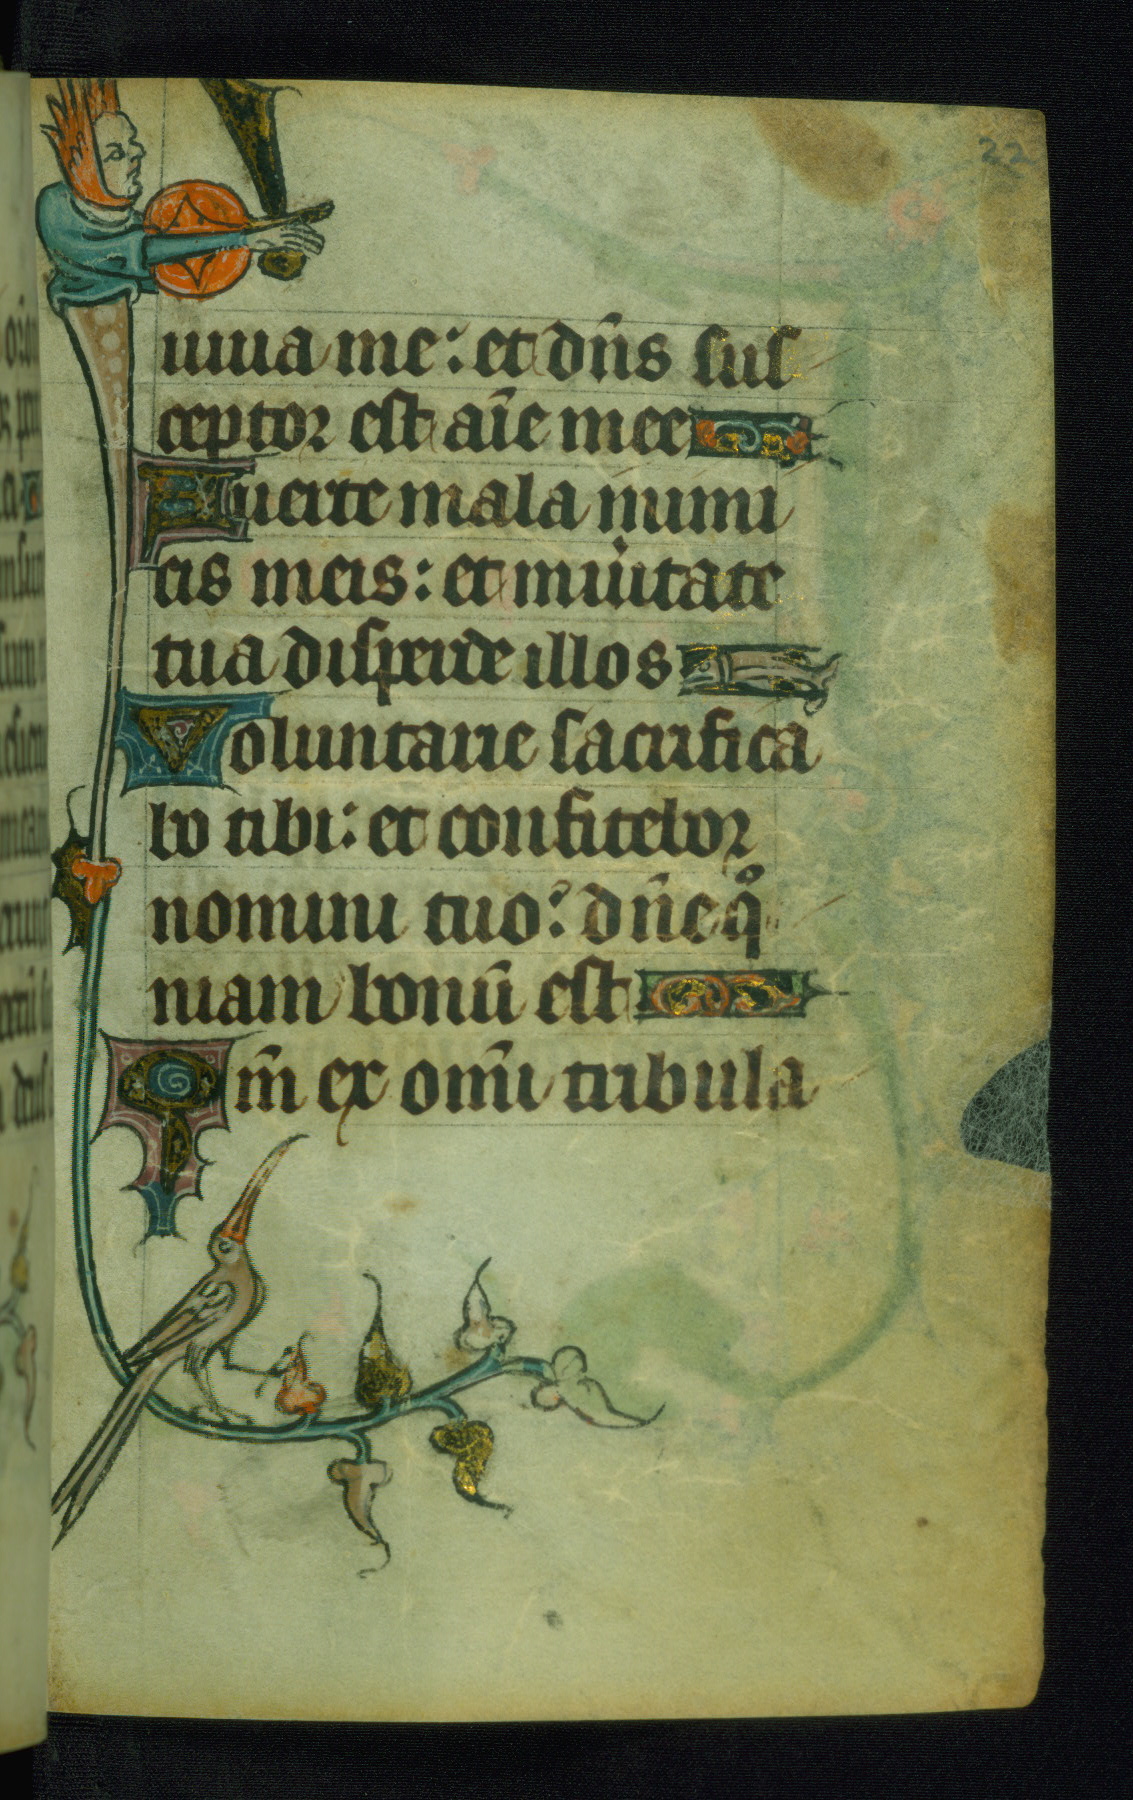 22
uiua me: et dn̄s sus
ceptor est aīe mee
Auerte mala inimi
cis meis: et in uitate
tua disperde illos
Voluntarie sacrifica
bo tibi: et confitebor
nomini tuo: dn̄e qͦ
niam bonū est
Qm̄ ex om̄i tribula